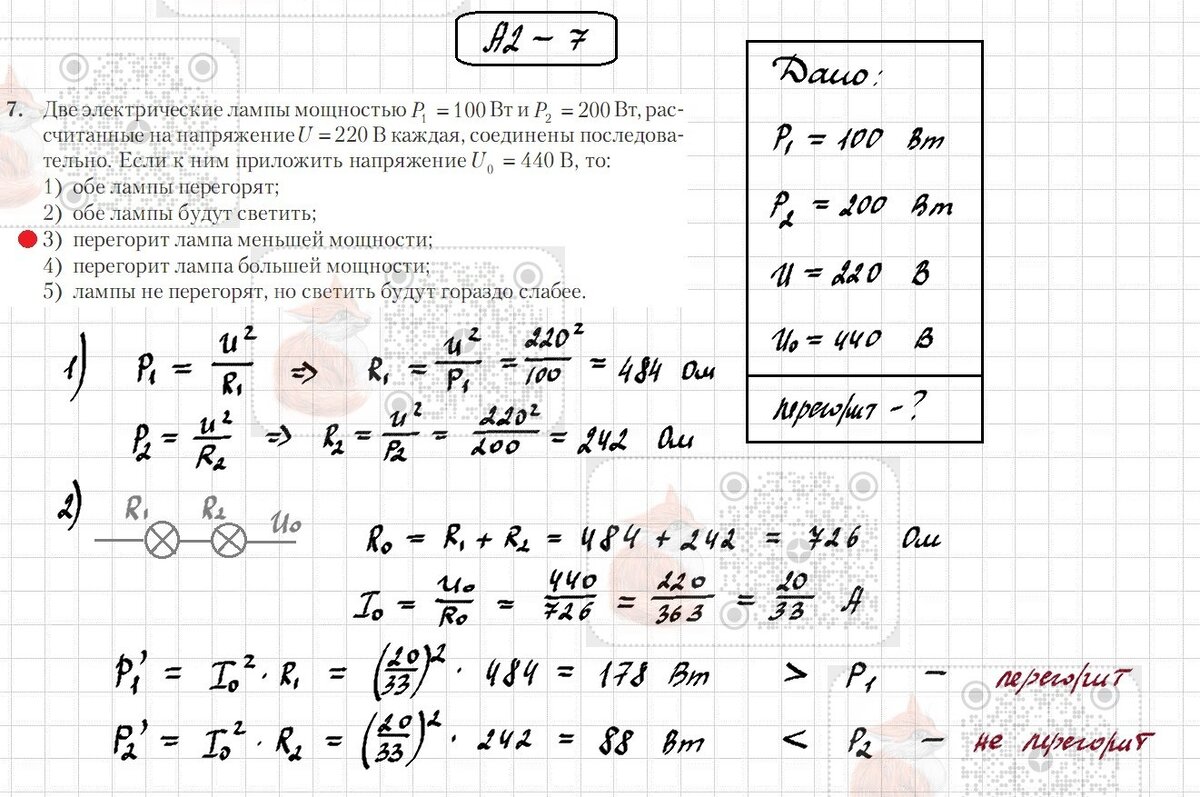 A2 – 7
7. Две электрические лампы мощностью P₁ = 100 Вт и P₂ = 200 Вт, рас-
считанные на напряжение U = 220 В каждая, соединены последова-
тельно. Если к ним приложить напряжение U₀ = 440 В, то:
1) обе лампы перегорят;
2) обе лампы будут светить;
3) перегорит лампа меньшей мощности;
4) перегорит лампа большей мощности;
5) лампы не перегорят, но светить будут гораздо слабее.
Дано:
P₁ = 100 Вт
P₂ = 200 Вт
U = 220 В
U₀ = 440 В
перегорит – ?
1) P₁ = U²/R₁ => R₁ = U²/P₁ = 220²/100 = 484 Ом
P₂ = U²/R₂ => R₂ = U²/P₂ = 220²/200 = 242 Ом
2) R₁ R₂ U₀
R₀ = R₁ + R₂ = 484 + 242 = 726 Ом
I₀ = U₀/R₀ = 440/726 = 220/363 = 20/33 А
P₁' = I₀² · R₁ = (20/33)² · 484 = 178 Вт > P₁ – перегорит
P₂' = I₀² · R₂ = (20/33)² · 242 = 88 Вт < P₂ – не перегорит